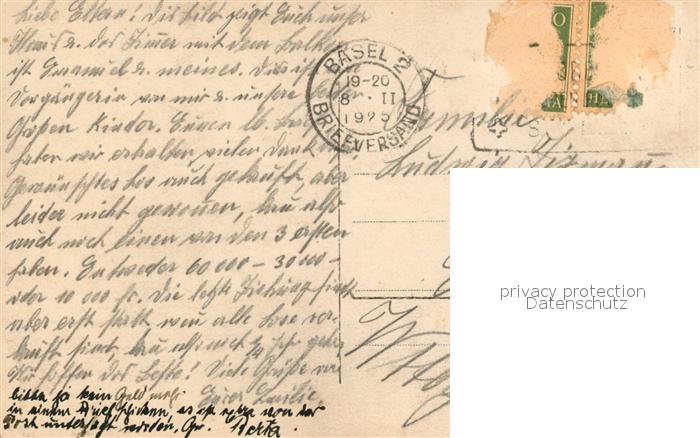 Liebe Eltern! Dies Bild zeigt Euch unser
Haus & das Zimmer mit dem Balkon
ist Emanuel & meines. Dies ist
Vorgängerin von mir & unsere
Großen Kinder. Euren lb.
haben wir erhalten vielen Dank.
Gewünschtes Los auch gekauft, aber
leider nicht gewonnen, kau also
auch noch einen von den 3 ersten
haben. Entweder 60 000 – 30 000 –
oder 10 000 fr. Die letzte Ziehung findet
aber erst statt wenn alle Lose ver-
kauft sind, kau also noch 1/4 Jahr gehn.
Wir hoffen das Beste! Viele Grüße von
Eurer Emilie.
bitte ja kein Geld mehr
in einem Brief schicken, es ist von der
Post untersagt worden, Gr. Berta.
BASEL 2
19-20
8 · II
1925
BRIEFVERSAND
Familie
Ludwig
privacy protection
Datenschutz